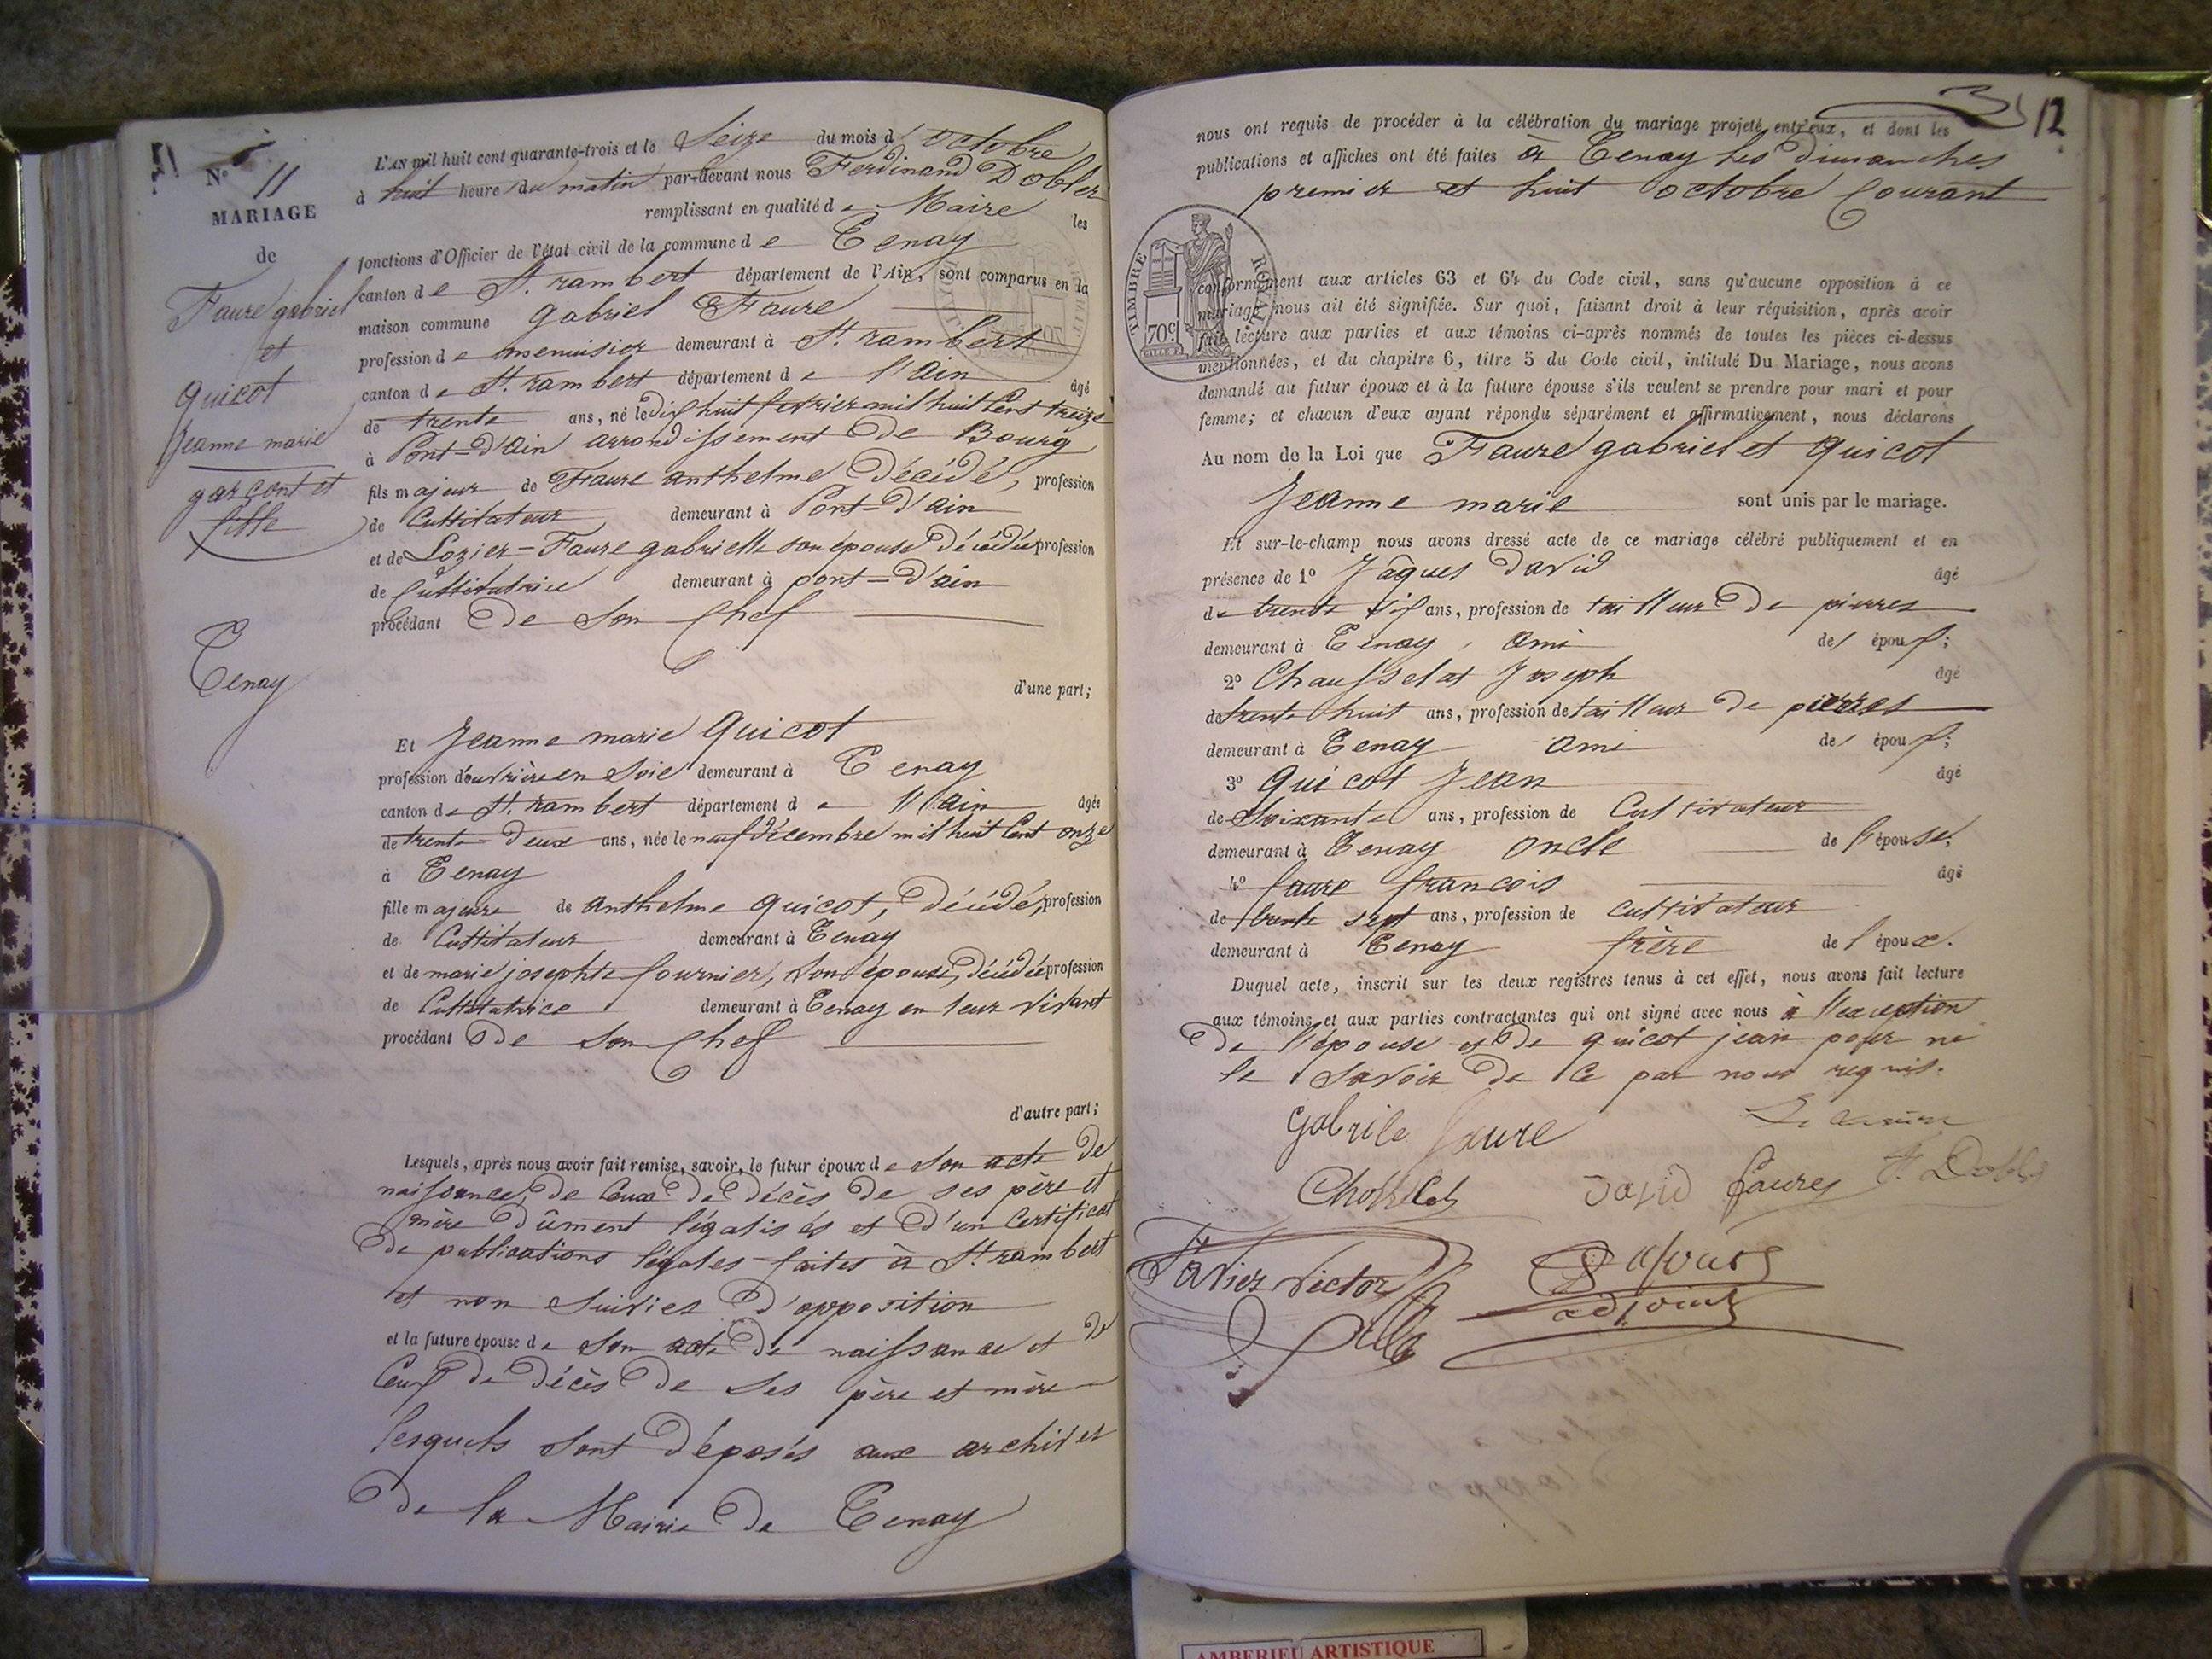 N.º 11
MARIAGE
de
Faure gabriel
et
quicot
Jeanne marie
garcont et
fille
Tenay
L'AN mil huit cent quarante-trois et le Seize du mois d'octobre
à huit heure du matin par-devant nous Ferdinand Dobler
remplissant en qualité de Maire les
fonctions d'Officier de l'état civil de la commune de Tenay
canton de St. rambert département de l'Ain, sont comparus en la
maison commune gabriel Faure
profession de menuisier demeurant à St. rambert
canton de St. rambert département de l'Ain âgé
de trente ans, né le dix huit fevrier mil huit Cent treize
à Pont-d'ain arrondissement de Bourg
fils majeur de Faure anthelme décédé, profession
de Cultivateur demeurant à Pont-d'ain
et de Lozier-Faure gabrielle son épouse décédée profession
de Cultivatrice demeurant à pont-d'ain
procédant de son Chef
d'une part;
Et Jeanne marie quicot
profession d'ouvrière en Soie demeurant à Tenay
canton de St. rambert département de l'ain âgée
de trente-deux ans, née le neuf décembre mil huit Cent onze
à Tenay
fille majeure de anthelme quicot, décédé, profession
de Cultivateur demeurant à Tenay
et de marie josephte fournier, son épouse, décédée profession
de Cultivatrice demeurant à Tenay en leur vivant
procédant de son Chef
d'autre part;
Lesquels, après nous avoir fait remise, savoir, le futur époux de son acte de
naissance, de Ceux de décès de ses père et
mère dûment légalisés et d'un Certificat
de publications légales faites à St. rambert
et non suivies d'opposition
et la future épouse de son acte de naissance et de
Ceux de décès de ses père et mère
lesquels sont déposés aux archives
de la Mairie de Tenay
12
nous ont requis de procéder à la célébration du mariage projeté entr'eux, et dont les
publications et affiches ont été faites à Tenay les dimanches
premier et huit octobre Courant
TIMBRE ROYAL
70c
conformément aux articles 63 et 64 du Code civil, sans qu'aucune opposition à ce
mariage nous ait été signifiée. Sur quoi, faisant droit à leur réquisition, après avoir
fait lecture aux parties et aux témoins ci-après nommés de toutes les pièces ci-dessus
mentionnées, et du chapitre 6, titre 5 du Code civil, intitulé Du Mariage, nous avons
demandé au futur époux et à la future épouse s'ils veulent se prendre pour mari et pour
femme; et chacun d'eux ayant répondu séparément et affirmativement, nous déclarons
Au nom de la Loi que Faure gabriel et quicot
Jeanne marie sont unis par le mariage.
Et sur-le-champ nous avons dressé acte de ce mariage célébré publiquement et en
présence de 1º Jâques david âgé
de trente six ans, profession de tailleur de pierres
demeurant à Tenay, ami de l'époux;
2º Chausselat Joseph âgé
de trente huit ans, profession de tailleur de pierres
demeurant à Tenay ami de l'époux;
3º quicot Jean âgé
de Soixante ans, profession de Cultivateur
demeurant à Tenay oncle de l'épouse,
4º faure francois âgé
de trente sept ans, profession de cultivateur
demeurant à Tenay frère de l'époux.
Duquel acte, inscrit sur les deux registres tenus à cet effet, nous avons fait lecture
aux témoins et aux parties contractantes qui ont signé avec nous à l'exception
de l'épouse et de quicot jean pour ne
le savoir de Ce par nous requis.
gabrile faure
Le maire
david faure f. Dobler
Favier victor
adjoint
AMBERIEU ARTISTIQUE